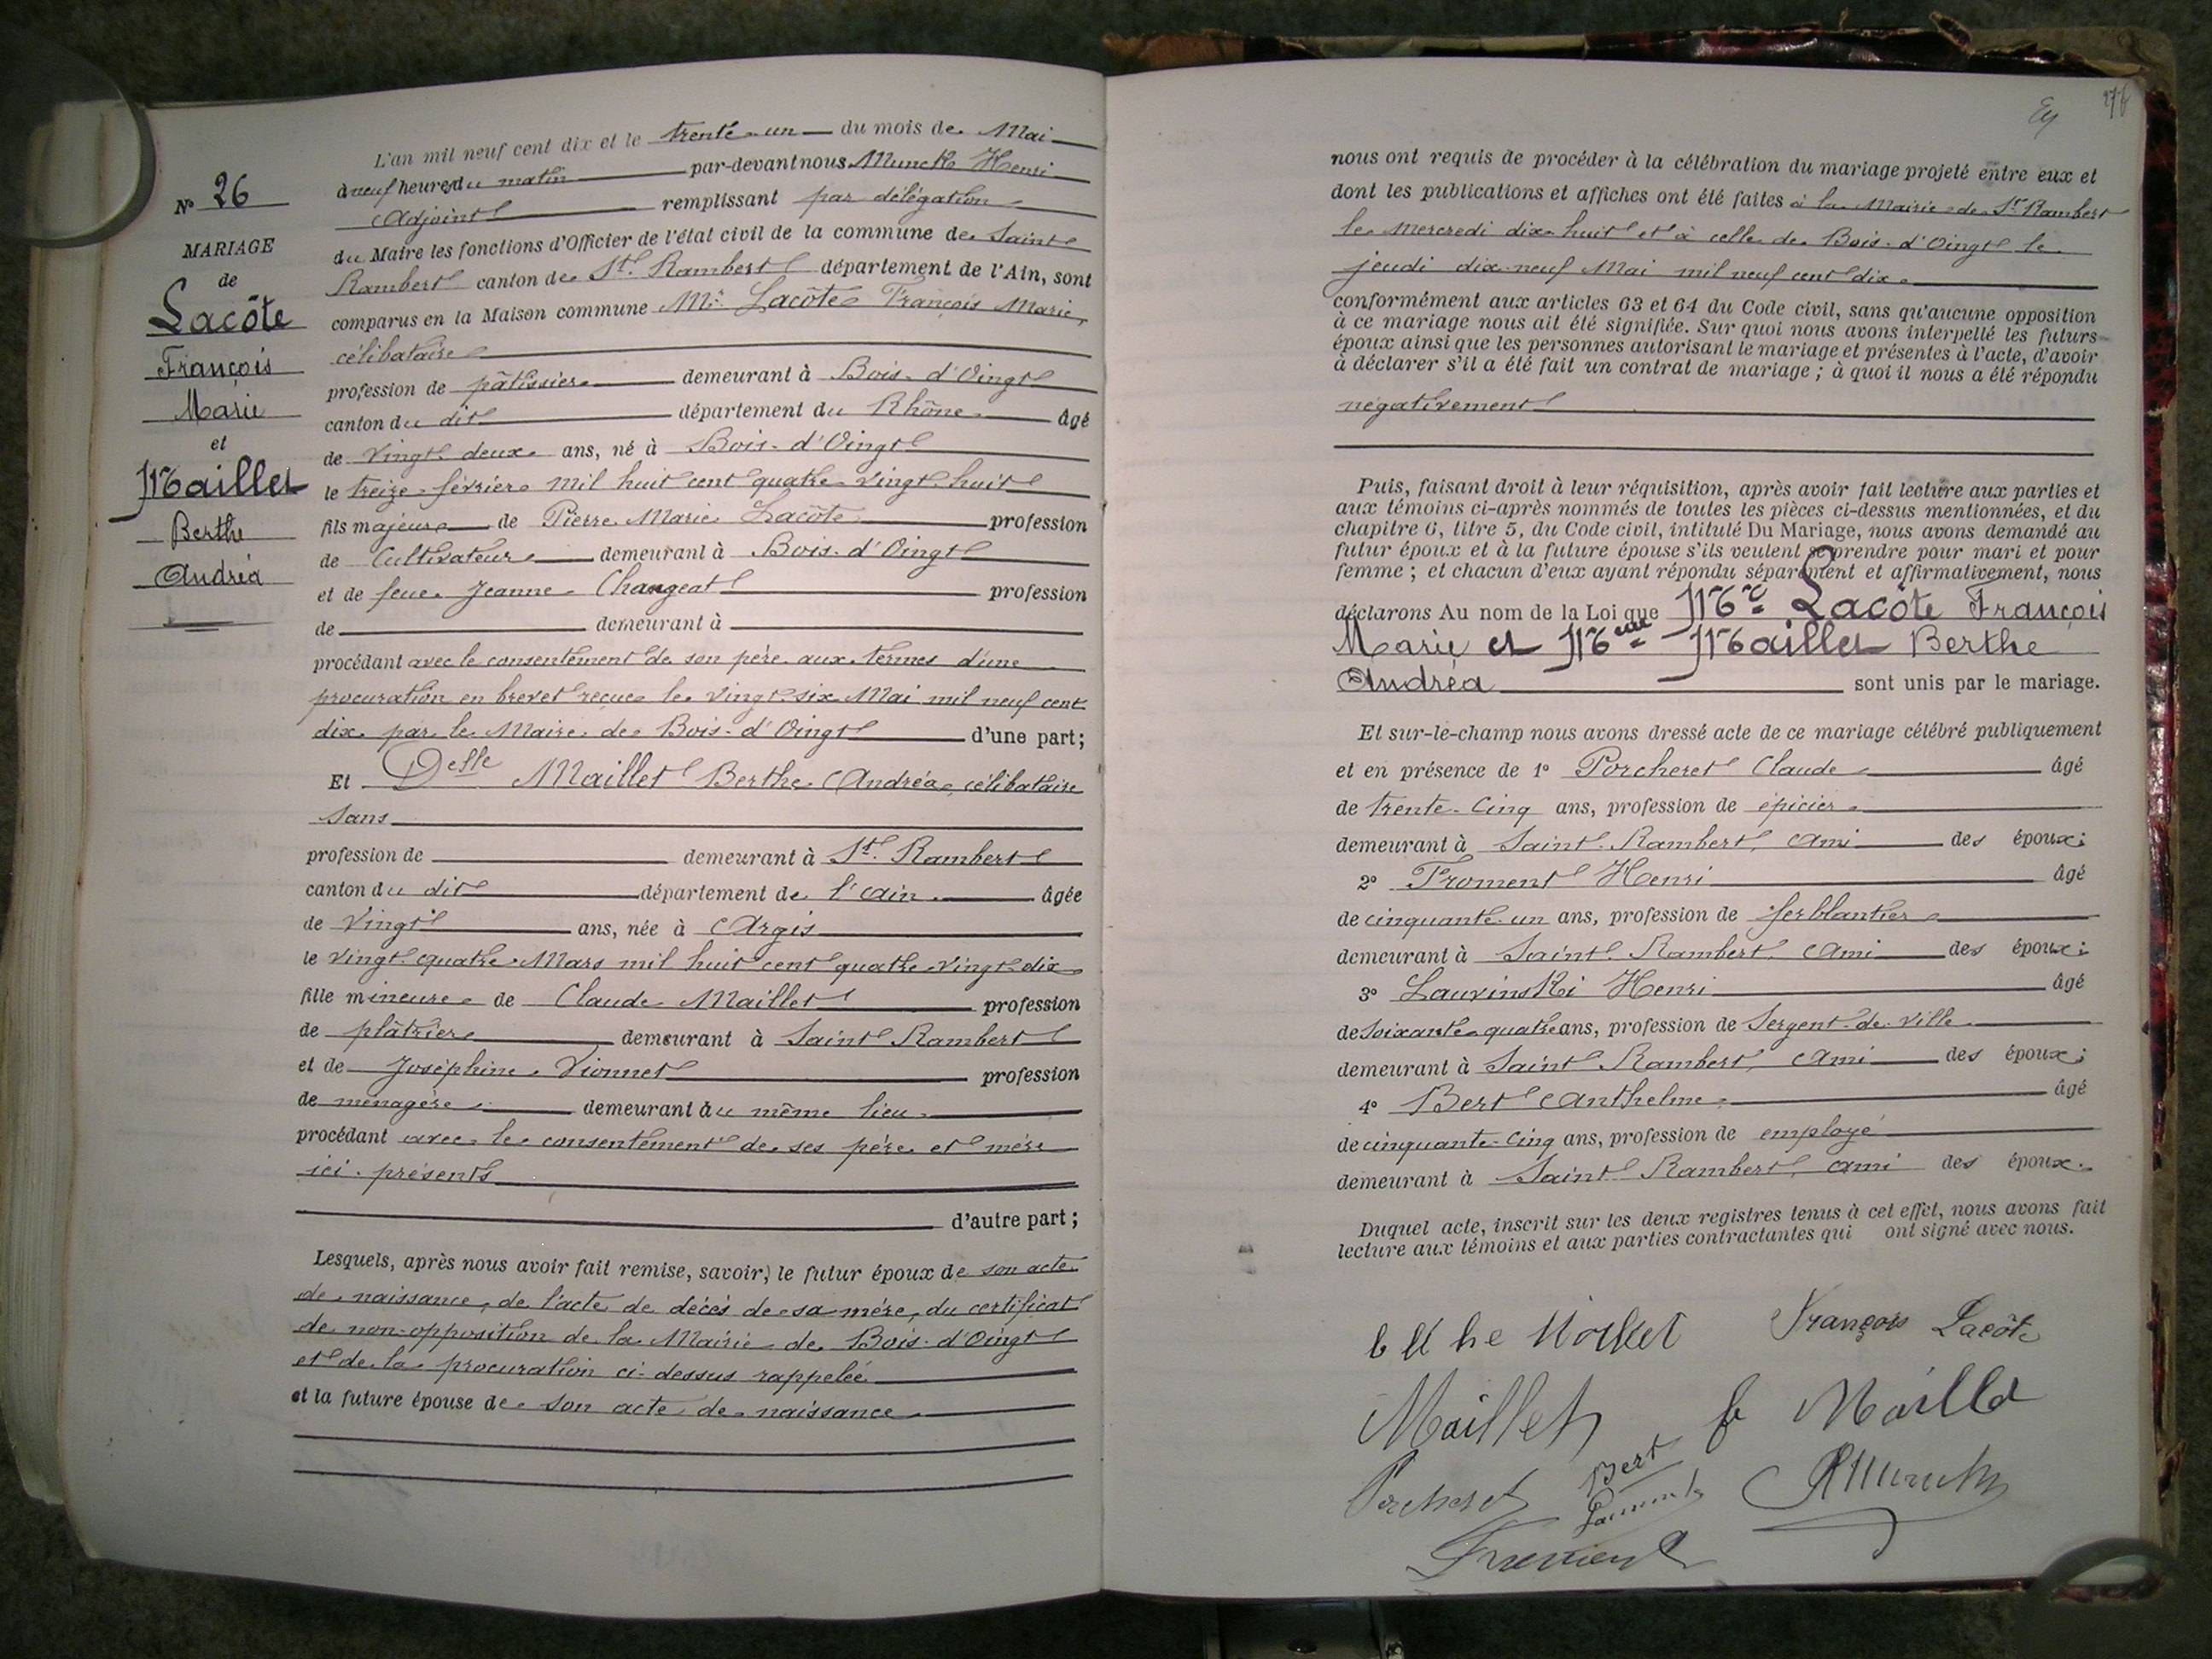 N° 26
MARIAGE
de
Lacôte
François
Marie
et
Maillet
Berthe
Andréa
L'an mil neuf cent dix et le trente-un du mois de Mai
à neuf heures du matin par-devant nous Munck Henri
Adjoint remplissant par délégation
du Maire les fonctions d'Officier de l'état civil de la commune de Saint
Rambert canton de St. Rambert département de l'Ain, sont
comparus en la Maison commune Mr. Lacôte François Marie,
célibataire
profession de pâtissier demeurant à Bois-d'Oingt
canton du dit département du Rhône âgé
de vingt deux ans, né à Bois-d'Oingt
le treize février mil huit cent quatre vingt huit
fils majeur de Pierre Marie Lacôte profession
de Cultivateur demeurant à Bois-d'Oingt
et de feue Jeanne Changeat profession
de demeurant à
procédant avec le consentement de son père aux termes d'une
procuration en brevet reçue le vingt-six Mai mil neuf cent
dix par le Maire de Bois-d'Oingt d'une part;
Et Delle Maillet Berthe Andréa, célibataire
Sans
profession de demeurant à St. Rambert
canton du dit département de l'ain âgée
de vingt ans, née à Argis
le vingt quatre Mars mil huit cent quatre vingt dix
fille mineure de Claude Maillet profession
de plâtrier demeurant à Saint Rambert
et de Joséphine Vionnet profession
de ménagère demeurant au même lieu
procédant avec le consentement de ses père et mère
ici présents
d'autre part;
Lesquels, après nous avoir fait remise, savoir; le futur époux de son acte
de naissance, de l'acte de décès de sa mère, du certificat
de non-opposition de la Mairie de Bois-d'Oingt
et de la procuration ci-dessus rappelée
et la future épouse de son acte de naissance
276
nous ont requis de procéder à la célébration du mariage projeté entre eux et
dont les publications et affiches ont été faites à la Mairie de St Rambert
le mercredi dix-huit et à celle de Bois-d'Oingt le
jeudi dix-neuf Mai mil neuf cent dix
conformément aux articles 63 et 64 du Code civil, sans qu'aucune opposition
à ce mariage nous ait été signifiée. Sur quoi nous avons interpellé les futurs
époux ainsi que les personnes autorisant le mariage et présentes à l'acte, d'avoir
à déclarer s'il a été fait un contrat de mariage; à quoi il nous a été répondu
négativement
Puis, faisant droit à leur réquisition, après avoir fait lecture aux parties et
aux témoins ci-après nommés de toutes les pièces ci-dessus mentionnées, et du
chapitre 6, titre 5, du Code civil, intitulé Du Mariage, nous avons demandé au
futur époux et à la future épouse s'ils veulent se prendre pour mari et pour
femme; et chacun d'eux ayant répondu séparément et affirmativement, nous
déclarons Au nom de la Loi que Mr Lacôte François
Marie et Melle Maillet Berthe
Andréa sont unis par le mariage.
Et sur-le-champ nous avons dressé acte de ce mariage célébré publiquement
et en présence de 1° Porcheret Claude âgé
de trente-cinq ans, profession de épicier
demeurant à Saint-Rambert, ami des époux;
2° Froment Henri âgé
de cinquante-un ans, profession de ferblantier
demeurant à Saint-Rambert, ami des époux;
3° Lauvinski Henri âgé
de soixante-quatre ans, profession de Sergent de ville
demeurant à Saint Rambert, ami des époux;
4° Bert Anthelme âgé
de cinquante-cinq ans, profession de employé
demeurant à Saint Rambert, ami des époux.
Duquel acte, inscrit sur les deux registres tenus à cet effet, nous avons fait
lecture aux témoins et aux parties contractantes qui ont signé avec nous.
François Lacôte
Maillet
Porcheret Bert
Froment